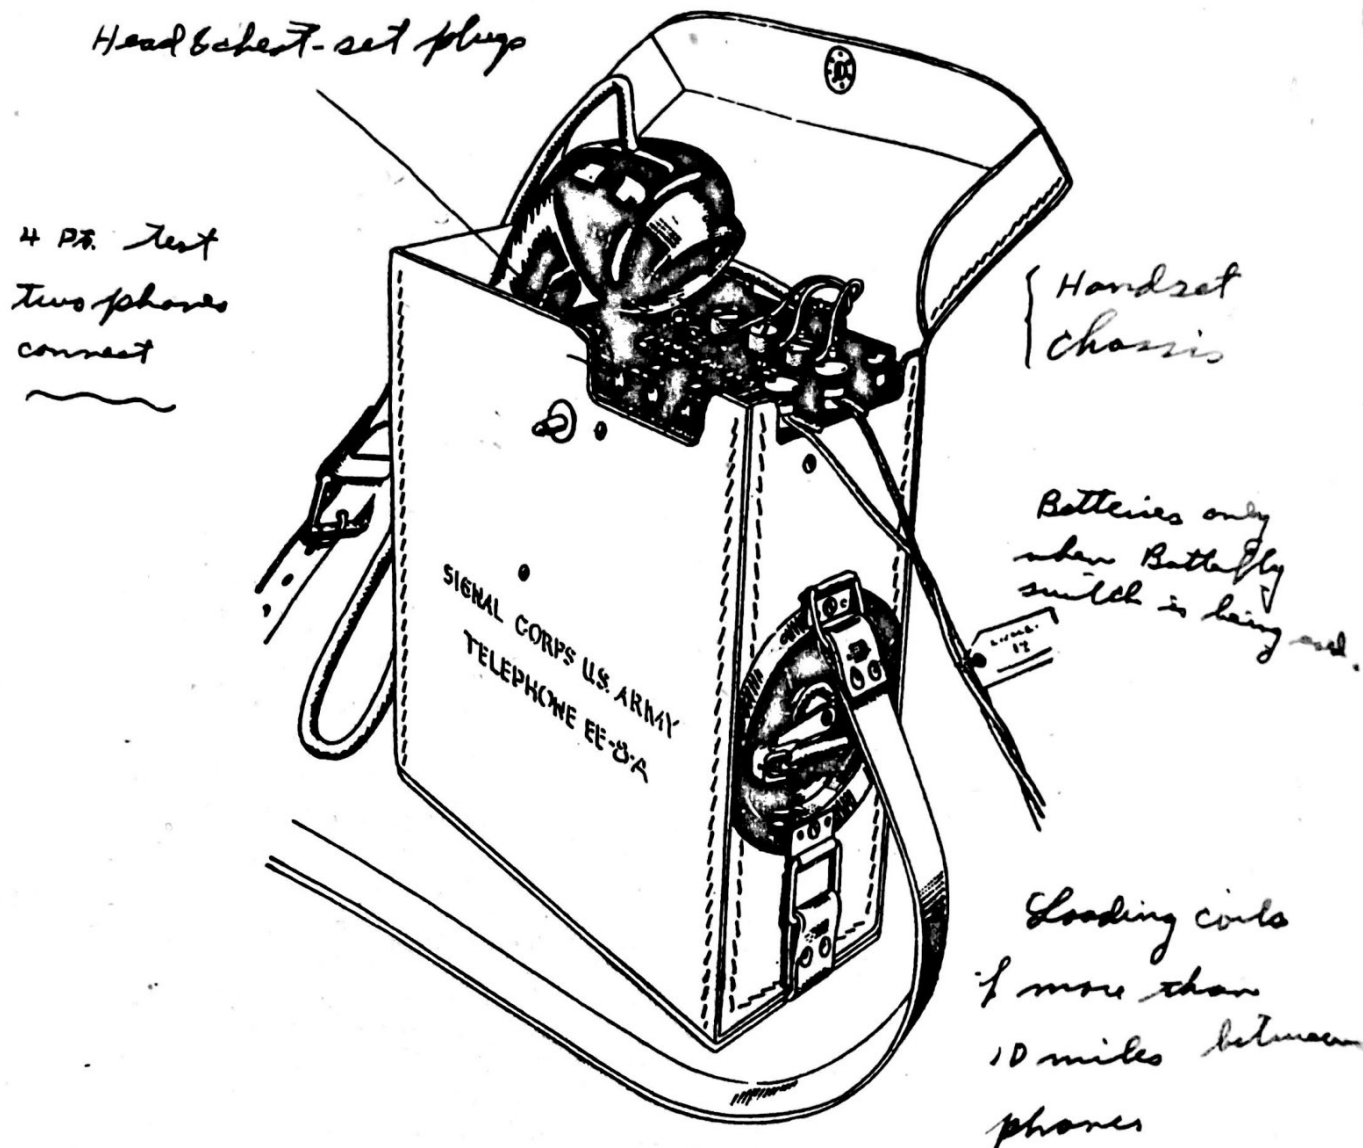 Head & chest-set plugs
4 Pt. test
two phones
connect
Handset
chassis
Batteries only
when Butterfly
switch is being used.
SIGNAL CORPS U.S. ARMY
TELEPHONE EE-8-A
Loading coils
if more than
10 miles between
phones